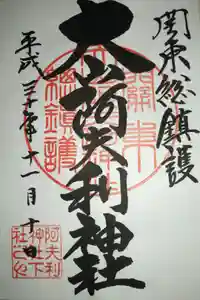 関東総鎮護
大山阿夫利神社
平成三十年十一月十日
関東
総鎮護
阿夫利
神下
社之印